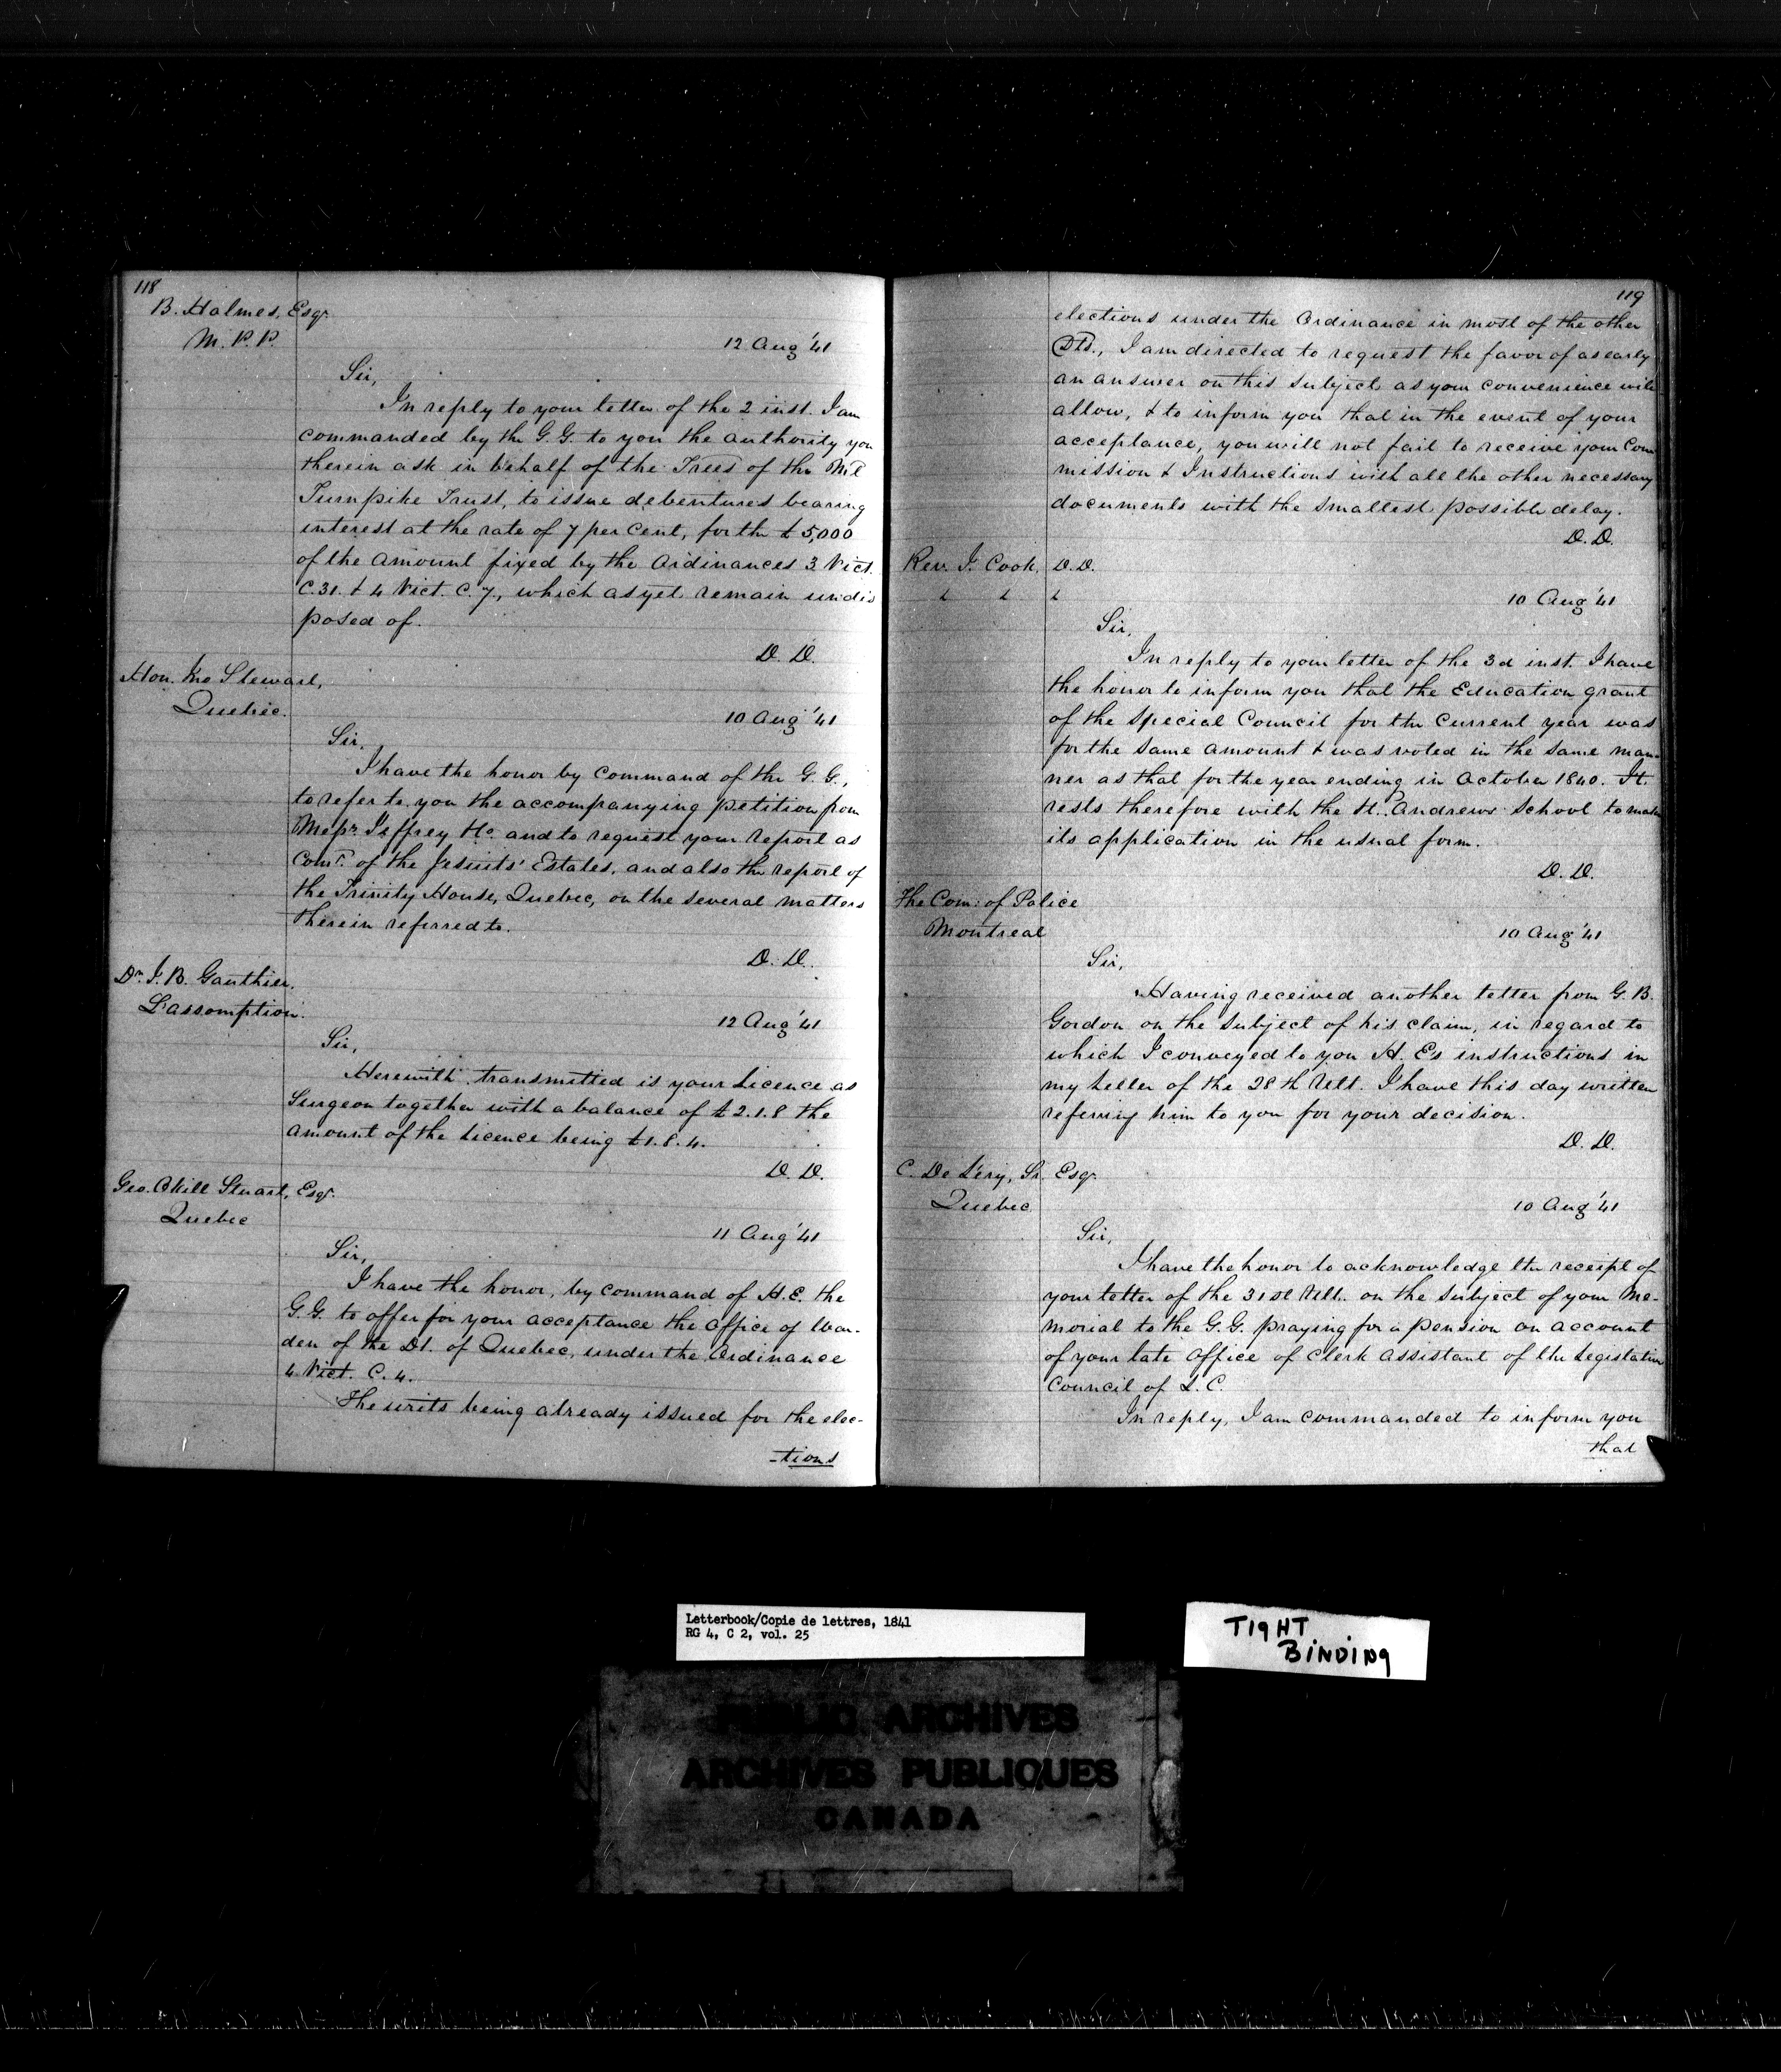 118
B. Holmes, Esqr.
M.P.P.
12 Aug '41
Sir,
In reply to your letter of the 2 inst. I am
commanded by the G.G. to you the authority you
therein ask in behalf of the Trees of the Ml
Turnpike Trust, to issue debentures bearing
interest at the rate of 7 per cent, for the £5,000
of the amount fixed by the Ordinances 3 Vict.
C. 31. & 4 Vict. C. 7., which as yet remain undis
posed of.
D. D.
Hon. Jno Stewart,
Quebec.
10 Aug '41
Sir,
I have the honor by command of the G.G.,
to refer to you the accompanying petition from
Messrs. Jeffrey & Co. and to request your report as
Comr. of the Jesuits' Estates, and also the report of
the Trinity House, Quebec, on the several matters
therein referred to.
D. D.
Dr. J. B. Gauthier.
L'assomption.
12 Aug '41
Sir,
Herewith transmitted is your Licence as
Surgeon together with a balance of £2.1.8 the
amount of the Licence being £1.8.4.
D. D.
Geo. Okill Stuart, Esqr.
Quebec
11 Aug '41
Sir,
I have the honor, by command of H.E. the
G.G. to offer for your acceptance the Office of War-
den of the Dt. of Quebec, under the Ordinance
4 Vict. C. 4.
The writs being already issued for the elec-
-tions
119
elections under the Ordinance in most of the other
Dts., I am directed to request the favor of as early
an answer on this subject as your convenience will
allow, & to inform you that in the event of your
acceptance, you will not fail to receive your Com
mission & Instructions with all the other necessary
documents with the smallest possible delay.
D. D.
Rev. J. Cook, D.D.
& & &
10 Aug '41
Sir,
In reply to your letter of the 3d inst. I have
the honor to inform you that the Education grant
of the Special Council for the current year was
for the same amount & was voted in the same man-
ner as that for the year ending in October 1840. It
rests therefore with the St. Andrews School to make
its application in the usual form.
D. D.
The Com: of Police
Montreal
10 Aug '41
Sir,
Having received another letter from G. B.
Gordon on the subject of his claim, in regard to
which I conveyed to you H. E's instructions in
my letter of the 28th Ult. I have this day written
referring him to you for your decision.
D. D.
C. De Léry, Sr. Esqr.
Quebec
10 Aug '41
Sir,
I have the honor to acknowledge the receipt of
your letter of the 31st Ult. on the subject of your Me-
morial to the G.G. praying for a pension on account
of your late Office of Clerk Assistant of the Legislative
Council of L. C.
In reply, I am commanded to inform you
that
Letterbook/Copie de lettres, 1841
RG 4, C 2, vol. 25
TIGHT
BINDING
PUBLIC ARCHIVES
ARCHIVES PUBLIQUES
CANADA